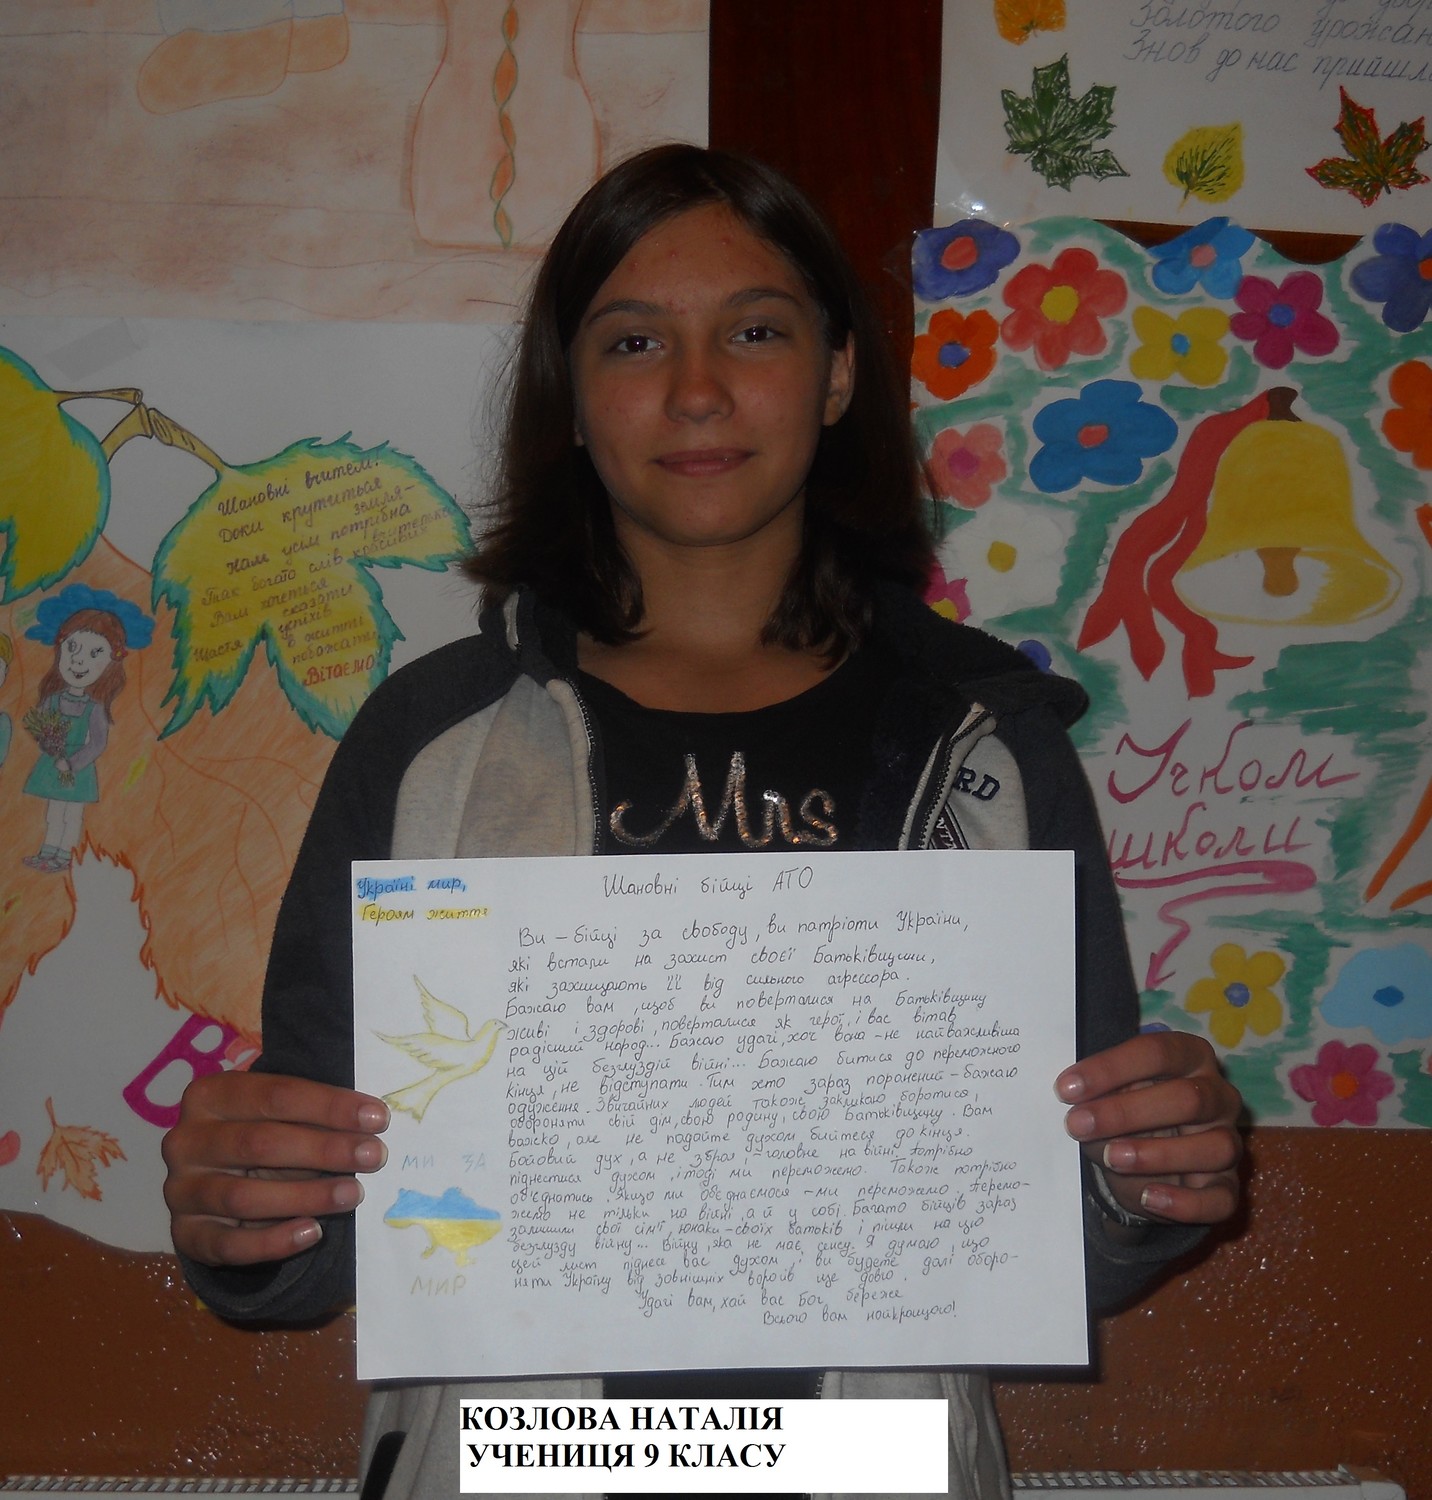 Золотого урожаю
Знов до нас прийшл
Шановні вчителі!
Доки крутиться
земля —
Нам усім потрібна
вчителька
Так багато слів красивих
Вам хочеться
сказати
Щастя успіхів
в житті
побажати.
Вітаємо!
В
Учком
школи
Mrs
RD
Україні мир,
Героям життя
Шановні бійці АТО
Ви – бійці за свободу, ви патріоти України,
які встали на захист своєї Батьківщини,
які захищають її від сильного агрессора.
Бажаю вам, щоб ви повертались на Батьківщину
живі і здорові, повертались як герої, і вас вітав
радісний народ... Бажаю удачі, хоч вона – не найважливіша
на цій безглуздій війні... Бажаю битися до переможного
кінця, не відступати. Тим хто зараз поранений – бажаю
одуження. Звичайних людей також закликаю боротися,
обороняти свій дім, свою родину, свою Батьківщину. Вам
важко, але не падайте духом бийтеся до кінця.
Бойовий дух, а не зброя, – головне на війні. Потрібно
піднестися духом, і тоді ми переможемо. Також потрібно
об'єднатись. Якщо ми об'єднаємося – ми переможемо. Перемо-
жемо не тільки на війні, а й у собі. Багато бійців зараз
залишили свої сім'ї, юнаки – своїх батьків і пішли на цю
безглузду війну... Війну, яка не має сенсу. Я думаю, що
цей лист піднесе вас духом, і ви будете далі оборо-
няти Україну від зовнішніх ворогів ще довго.
Удачі вам, хай вас Бог береже
Всього вам найкращого!
МИ ЗА
МИР
КОЗЛОВА НАТАЛІЯ
УЧЕНИЦЯ 9 КЛАСУ